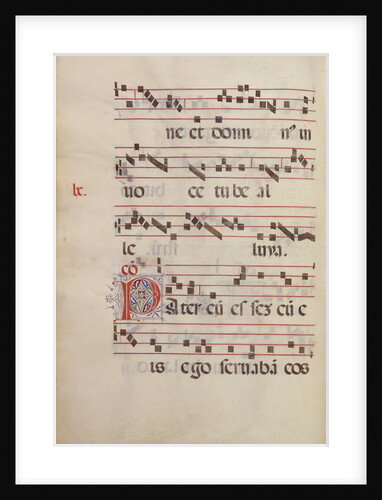 ne et domi nus in
lx.
uo ce tube al
le luya.
cō
Pater cū essēs cū e
is ego seruabā eos